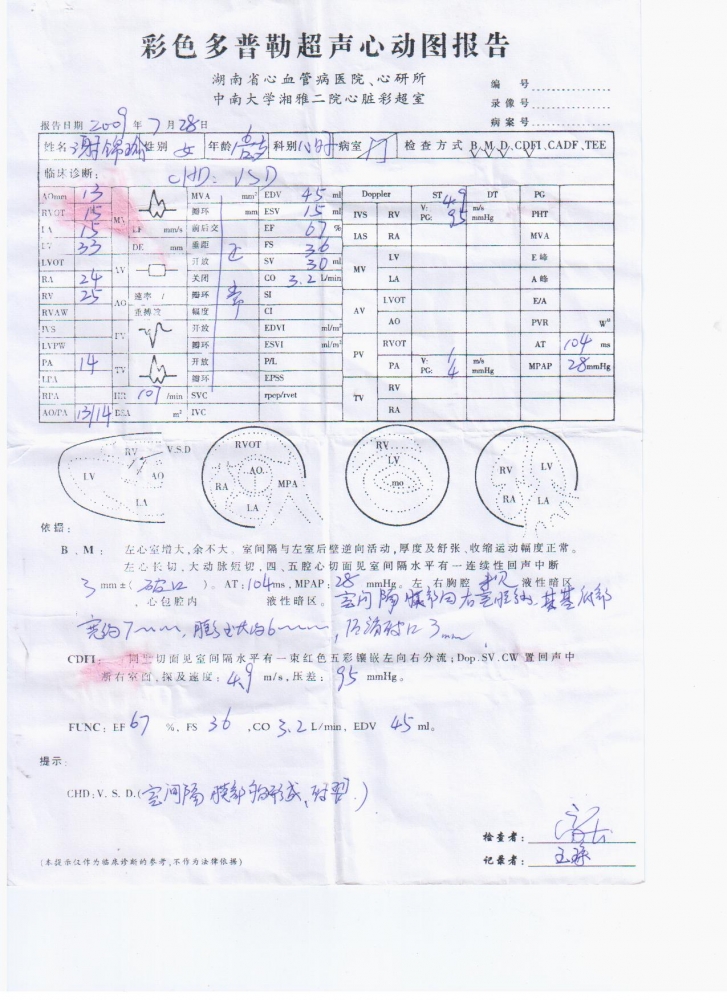 彩色多普勒超声心动图报告
湖南省心血管病医院、心研所
中南大学湘雅二院心脏彩超室
编 号
录像号
病案号
报告日期 2009 年 7 月 28 日
姓名 谢锦瑜 性别 女 年龄 科别 病室 门 检查方式 B、M、D、CDFI、CADF、TEE
临床诊断: CHD: VSD
AOmm 13 MVA mm² EDV 45 ml Doppler ST DT PG
RVOT 15 MV 瓣环 mm ESV 15 ml IVS RV V: 4.9 m/s PG: 95 mmHg PHT
LA 15 EF mm/s 前后交 EF 67 % IAS RA MVA
LV 33 DE mm 垂距 FS 36 MV LV E峰
LVOT AV 开放 正 SV 30 ml
RA 24 关闭 CO 3.2 L/min LA A峰
RV 25 AO 速率 / 瓣环 常 SI AV LVOT E/A
RVAW 重搏波 幅度 CI AO PVR W
IVS PV 开放 EDVI ml/m² PV RVOT AT 104 ms
LVPW 瓣环 ESVI ml/m²
PA 14 TV 开放 P/L PA V: 1 m/s PG: 4 mmHg MPAP 28 mmHg
LPA 瓣环 EPSS TV RV
RPA HR 107 /min SVC rpep/rvet
AO/PA 13/14 BSA m² IVC RA
RV V.S.D LV AO LA
RVOT AO. RA MPA LA
RV LV mo
RV LV RA LA
依据:
B、M: 左心室增大,余不大。室间隔与左室后壁逆向活动,厚度及舒张、收缩运动幅度正常。
左心长切、大动脉短切,四、五腔心切面见室间隔水平有一连续性回声中断
3 mm±( 破口 )。AT: 104 ms, MPAP: 28 mmHg。左、右胸腔 未见 液性暗区
、心包腔内 液性暗区。 室间隔膜部向右室膨出,其基底部
宽约7mm,膨出大约6mm,后滴破口3mm
CDFI: 同上切面见室间隔水平有一束红色五彩镶嵌左向右分流; Dop. SV. CW 置回声中
断右室面,探及速度: 4.9 m/s,压差: 95 mmHg。
FUNC: EF 67 %, FS 36 ,CO 3.2 L/min, EDV 45 ml。
提示:
CHD: V. S. D.(室间隔膜部 形成
检查者:
记录者: 王
(本提示仅作为临床诊断的参考,不作为法律依据)